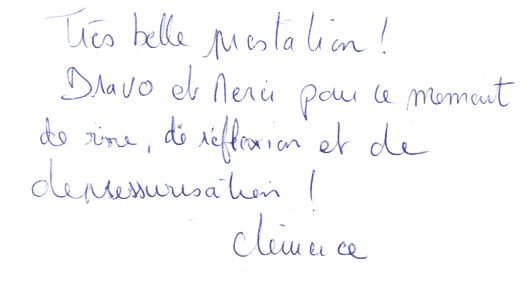 Très belle prestation !
Bravo et Merci pour ce moment
de rire, de réflexion et de
depressurisation !
Clémence